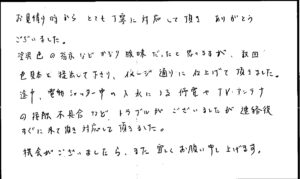 お見積り時から とても丁寧に対応して頂き ありがとう
ございました。
塗装色の指示などかなり曖昧だったと思いますが、数回
色見本を提示して下さり、イメージ通りに仕上げて頂きました。
途中、電動シャッター中の入出による停電やTVアンテナ
の接触不具合など、トラブルがございましたが連絡後
すぐに来て頂き対応して頂きました。
機会がございましたら、また宜しくお願い申し上げます。